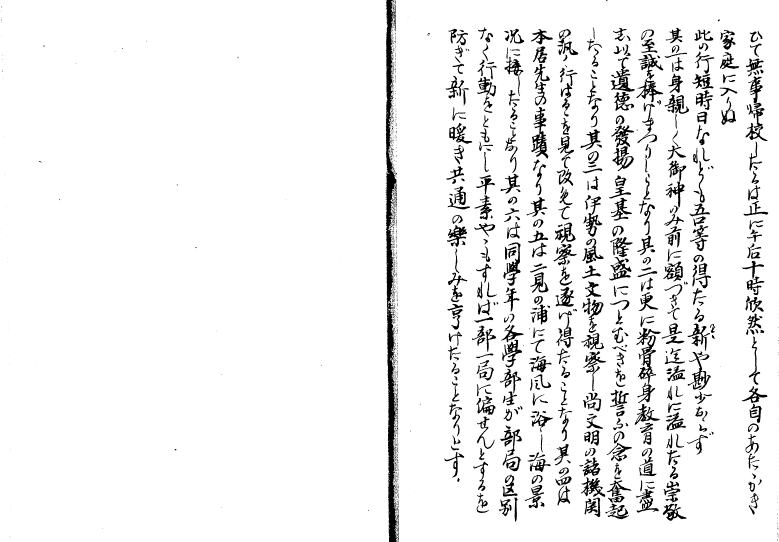 ひて無事帰校したるは正に午后十時欣然として各自のあたゝかき
家庭に入りぬ
此の行短時日なれども吾等の得たる新や尠少ならず
其の一は身親しく大御神のみ前に額づきて是迄溢れに溢れたる崇敬
の至誠を捧げまつりしことなり其の二は更に粉骨碎身教育の道に盡
し以て遺徳の發揚皇基の隆盛につとむべきを誓ふの念を奮起
したることなり其の三は伊勢の風土文物を視察し尚文明の諸機関
の行はるゝを見て改めて視察を遂げ得たることなり其の四は
本居先生の事蹟なり其の五は二見の浦にて海風に浴し海の景
况に接したることなり其の六は同學年の各學部生が部局の区別
なく行動をともにし平素やゝもすれば一部一局に偏せんとするを
防ぎて新に暖き共通の樂しみを享けたることなりとす.